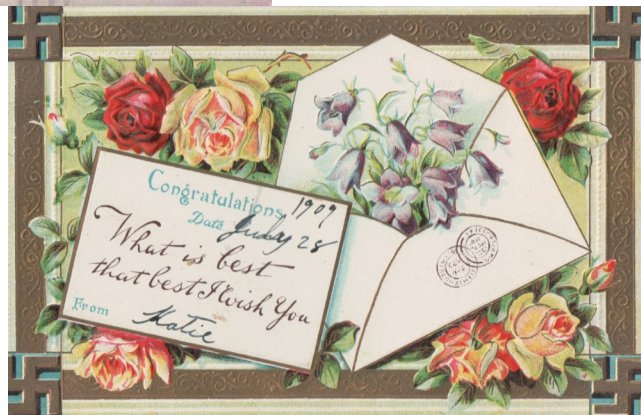 Congratulations 1909
Date July 28
What is best
that best I wish You
From Katie